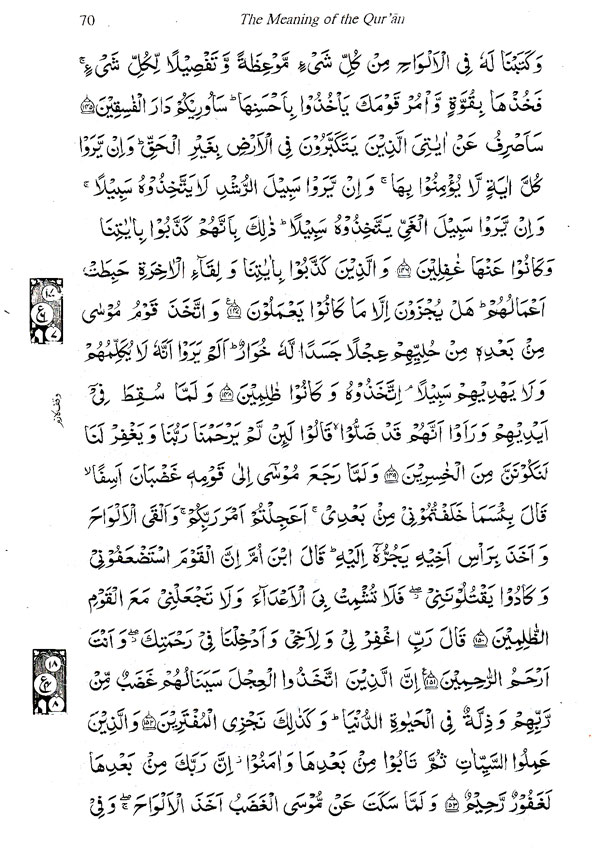 70
The Meaning of the Qur'ān
وَكَتَبْنَا لَهٗ فِى الْاَلْوَاحِ مِنْ كُلِّ شَىْءٍ مَّوْعِظَةً وَّتَفْصِيْلًا لِّكُلِّ شَىْءٍ ۚ
فَخُذْهَا بِقُوَّةٍ وَّاْمُرْ قَوْمَكَ يَاْخُذُوْا بِاَحْسَنِهَا ؕ سَاُورِيْكُمْ دَارَ الْفٰسِقِيْنَ ﴿۱۴۵﴾
سَاَصْرِفُ عَنْ اٰيٰتِىَ الَّذِيْنَ يَتَكَبَّرُوْنَ فِى الْاَرْضِ بِغَيْرِ الْحَقِّ ؕ وَاِنْ يَّرَوْا
كُلَّ اٰيَةٍ لَّا يُؤْمِنُوْا بِهَا ۚ وَاِنْ يَّرَوْا سَبِيْلَ الرُّشْدِ لَا يَتَّخِذُوْهُ سَبِيْلًا ۚ
وَاِنْ يَّرَوْا سَبِيْلَ الْغَىِّ يَتَّخِذُوْهُ سَبِيْلًا ؕ ذٰلِكَ بِاَنَّهُمْ كَذَّبُوْا بِاٰيٰتِنَا
وَكَانُوْا عَنْهَا غٰفِلِيْنَ ﴿۱۴۶﴾ وَالَّذِيْنَ كَذَّبُوْا بِاٰيٰتِنَا وَلِقَآءِ الْاٰخِرَةِ حَبِطَتْ
اَعْمَالُهُمْ ؕ هَلْ يُجْزَوْنَ اِلَّا مَا كَانُوْا يَعْمَلُوْنَ ﴿۱۴۷﴾ وَاتَّخَذَ قَوْمُ مُوْسٰى
مِنْۢ بَعْدِهٖ مِنْ حُلِيِّهِمْ عِجْلًا جَسَدًا لَّهٗ خُوَارٌ ؕ اَلَمْ يَرَوْا اَنَّهٗ لَا يُكَلِّمُهُمْ
وَلَا يَهْدِيْهِمْ سَبِيْلًا ۘ اِتَّخَذُوْهُ وَكَانُوْا ظٰلِمِيْنَ ﴿۱۴۸﴾ وَلَمَّا سُقِطَ فِىْٓ
اَيْدِيْهِمْ وَرَاَوْا اَنَّهُمْ قَدْ ضَلُّوْا ۙ قَالُوْا لَئِنْ لَّمْ يَرْحَمْنَا رَبُّنَا وَيَغْفِرْ لَنَا
لَنَكُوْنَنَّ مِنَ الْخٰسِرِيْنَ ﴿۱۴۹﴾ وَلَمَّا رَجَعَ مُوْسٰٓى اِلٰى قَوْمِهٖ غَضْبَانَ اَسِفًا ۙ
قَالَ بِئْسَمَا خَلَفْتُمُوْنِىْ مِنْۢ بَعْدِىْ ۚ اَعَجِلْتُمْ اَمْرَ رَبِّكُمْ ۚ وَاَلْقَى الْاَلْوَاحَ
وَاَخَذَ بِرَاْسِ اَخِيْهِ يَجُرُّهٗٓ اِلَيْهِ ؕ قَالَ ابْنَ اُمَّ اِنَّ الْقَوْمَ اسْتَضْعَفُوْنِىْ
وَكَادُوْا يَقْتُلُوْنَنِىْ ۖ فَلَا تُشْمِتْ بِىَ الْاَعْدَآءَ وَلَا تَجْعَلْنِىْ مَعَ الْقَوْمِ
الظّٰلِمِيْنَ ﴿۱۵۰﴾ قَالَ رَبِّ اغْفِرْ لِىْ وَلِاَخِىْ وَاَدْخِلْنَا فِىْ رَحْمَتِكَ ۖ وَاَنْتَ
اَرْحَمُ الرّٰحِمِيْنَ ﴿۱۵۱﴾ اِنَّ الَّذِيْنَ اتَّخَذُوا الْعِجْلَ سَيَنَالُهُمْ غَضَبٌ مِّنْ
رَّبِّهِمْ وَذِلَّةٌ فِى الْحَيٰوةِ الدُّنْيَا ؕ وَكَذٰلِكَ نَجْزِى الْمُفْتَرِيْنَ ﴿۱۵۲﴾ وَالَّذِيْنَ
عَمِلُوا السَّيِّاٰتِ ثُمَّ تَابُوْا مِنْۢ بَعْدِهَا وَاٰمَنُوْٓا ؗ اِنَّ رَبَّكَ مِنْۢ بَعْدِهَا
لَغَفُوْرٌ رَّحِيْمٌ ﴿۱۵۳﴾ وَلَمَّا سَكَتَ عَنْ مُّوْسَى الْغَضَبُ اَخَذَ الْاَلْوَاحَ ۖ وَفِىْ
ع
۷
وقف لازم
۱۸
ع
۸